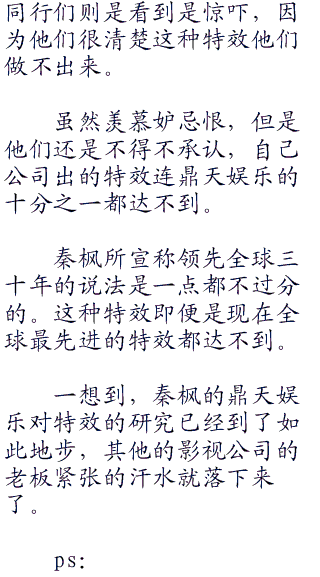 同行们则是看到是惊吓，因
为他们很清楚这种特效他们
做不出来。
虽然羡慕妒忌恨，但是
他们还是不得不承认，自己
公司出的特效连鼎天娱乐的
十分之一都达不到。
秦枫所宣称领先全球三
十年的说法是一点都不过分
的。这种特效即便是现在全
球最先进的特效都达不到。
一想到，秦枫的鼎天娱
乐对特效的研究已经到了如
此地步，其他的影视公司的
老板紧张的汗水就落下来
了。
ps: